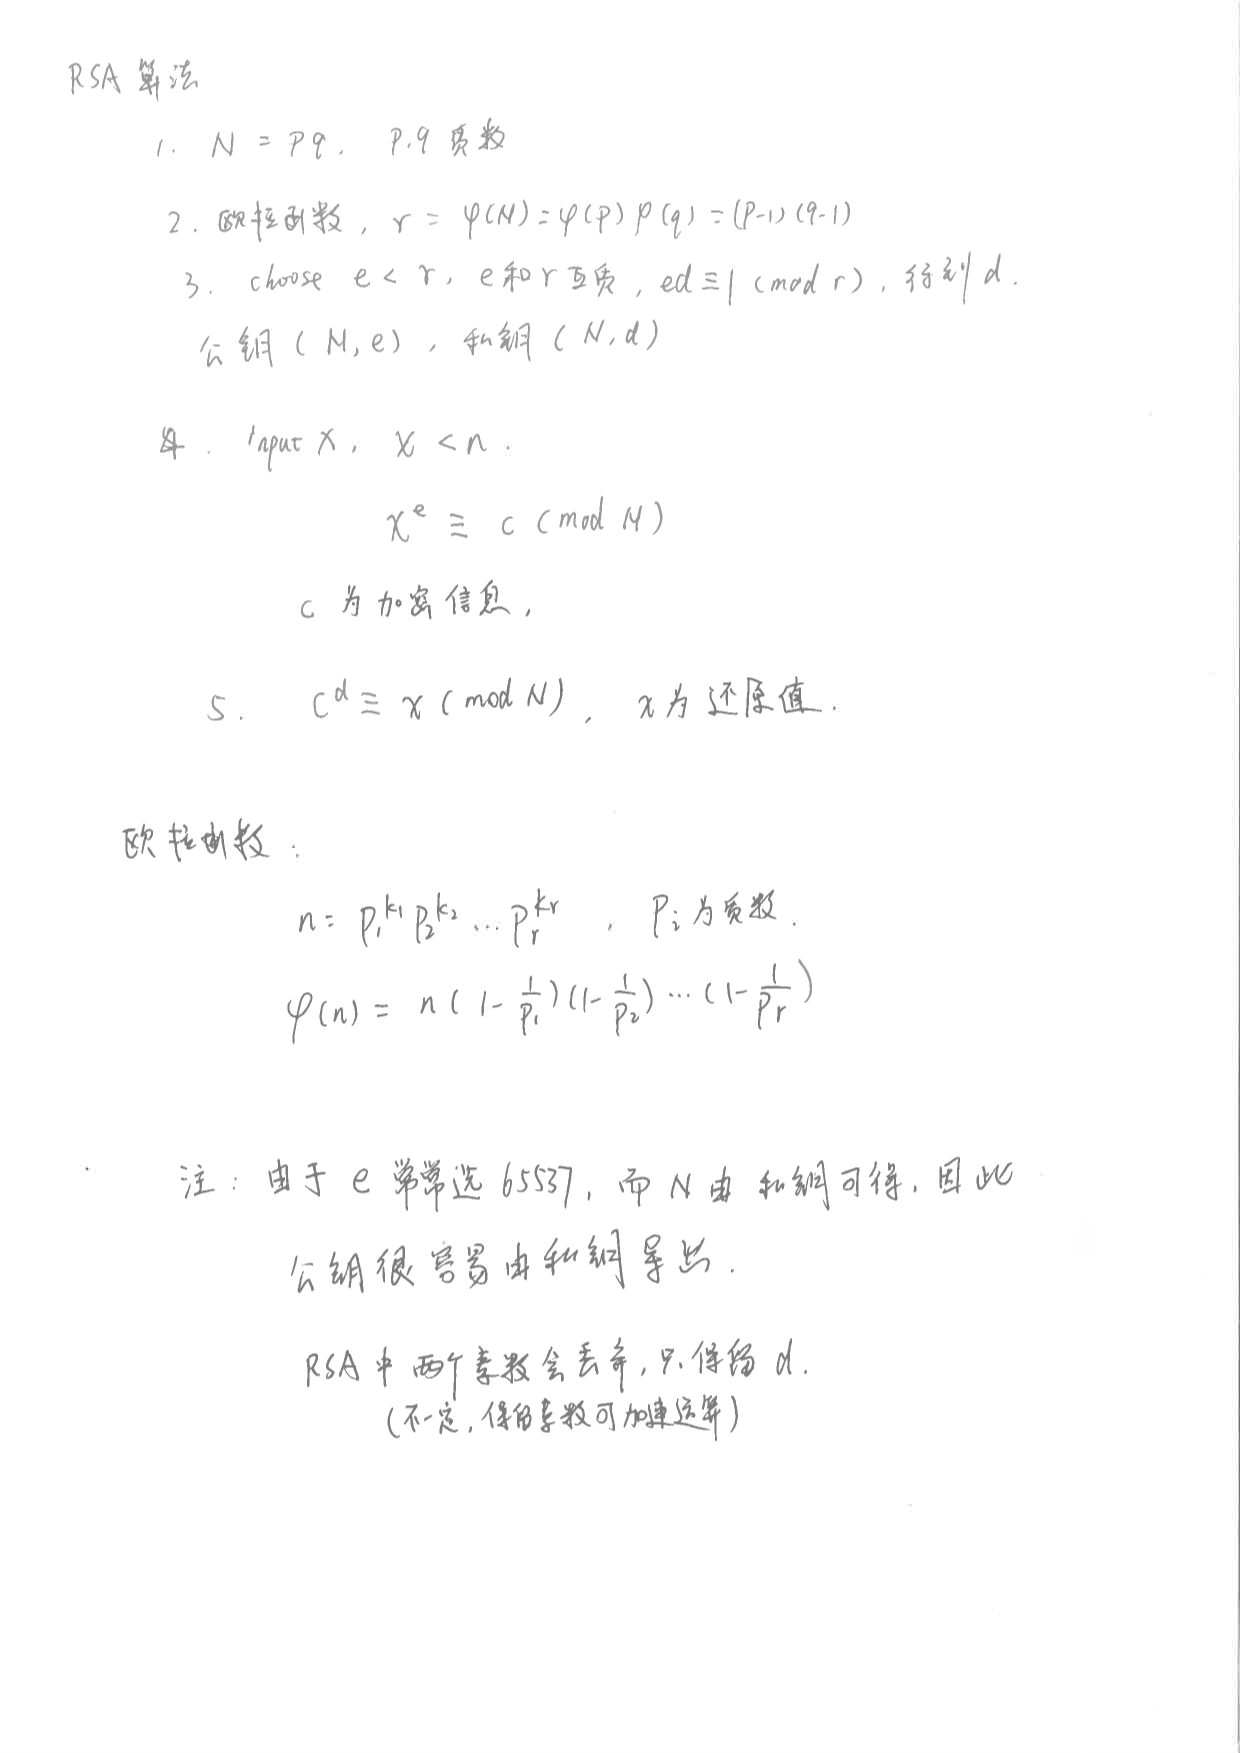 RSA算法
1. N = pq, p.q 质数
2. 欧拉函数, r = φ(N) = φ(p) φ(q) = (p-1)(q-1)
3. choose e < r, e和r互质, ed ≡ 1 (mod r), 得到d.
公钥 (N, e), 私钥 (N, d)
4. input x, x < n.
x^e ≡ c (mod N)
c 为加密信息,
5. c^d ≡ x (mod N), x为还原值.
欧拉函数:
n = p₁^k₁ p₂^k₂ ... pᵣ^kᵣ , pᵢ为质数.
φ(n) = n(1-1/p₁)(1-1/p₂)...(1-1/pᵣ)
注: 由于e常常选65537, 而N由私钥可得, 因此
公钥很容易由私钥导出.
RSA中两个素数会丢弃, 只保留d.
(不一定, 保留素数可加速运算)